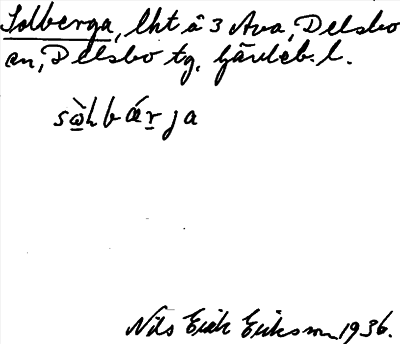 Solberga, lht å 3 Ava, Delsbo
sn, Delsbo tg. Gävleb. l.
sὼ̲lbár̲ja
Nils Erik Eriksson 1936.